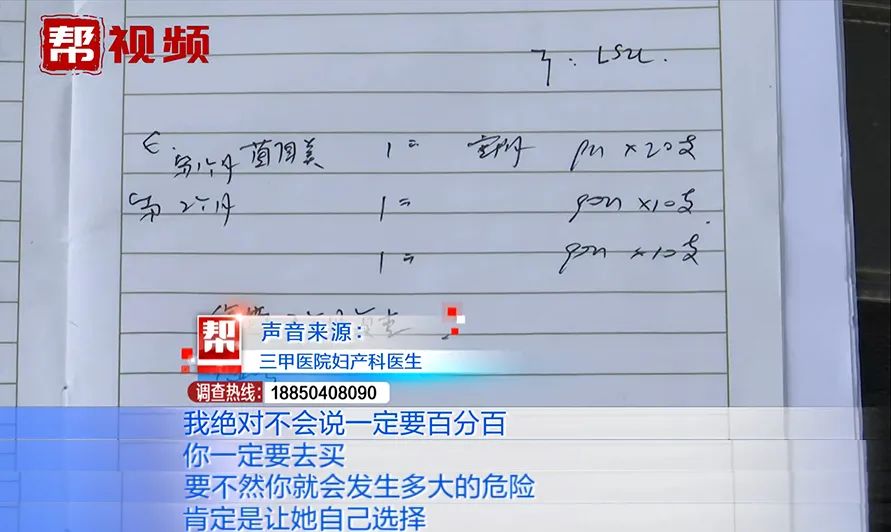 帮视频
第1个月 1= pn ×20支
第2个月 1= qon ×10支
1= qon ×10支
帮
声音来源:
三甲医院妇产科医生
调查热线: 18850408090
我绝对不会说一定要百分百
你一定要去买
要不然你就会发生多大的危险
肯定是让她自己选择